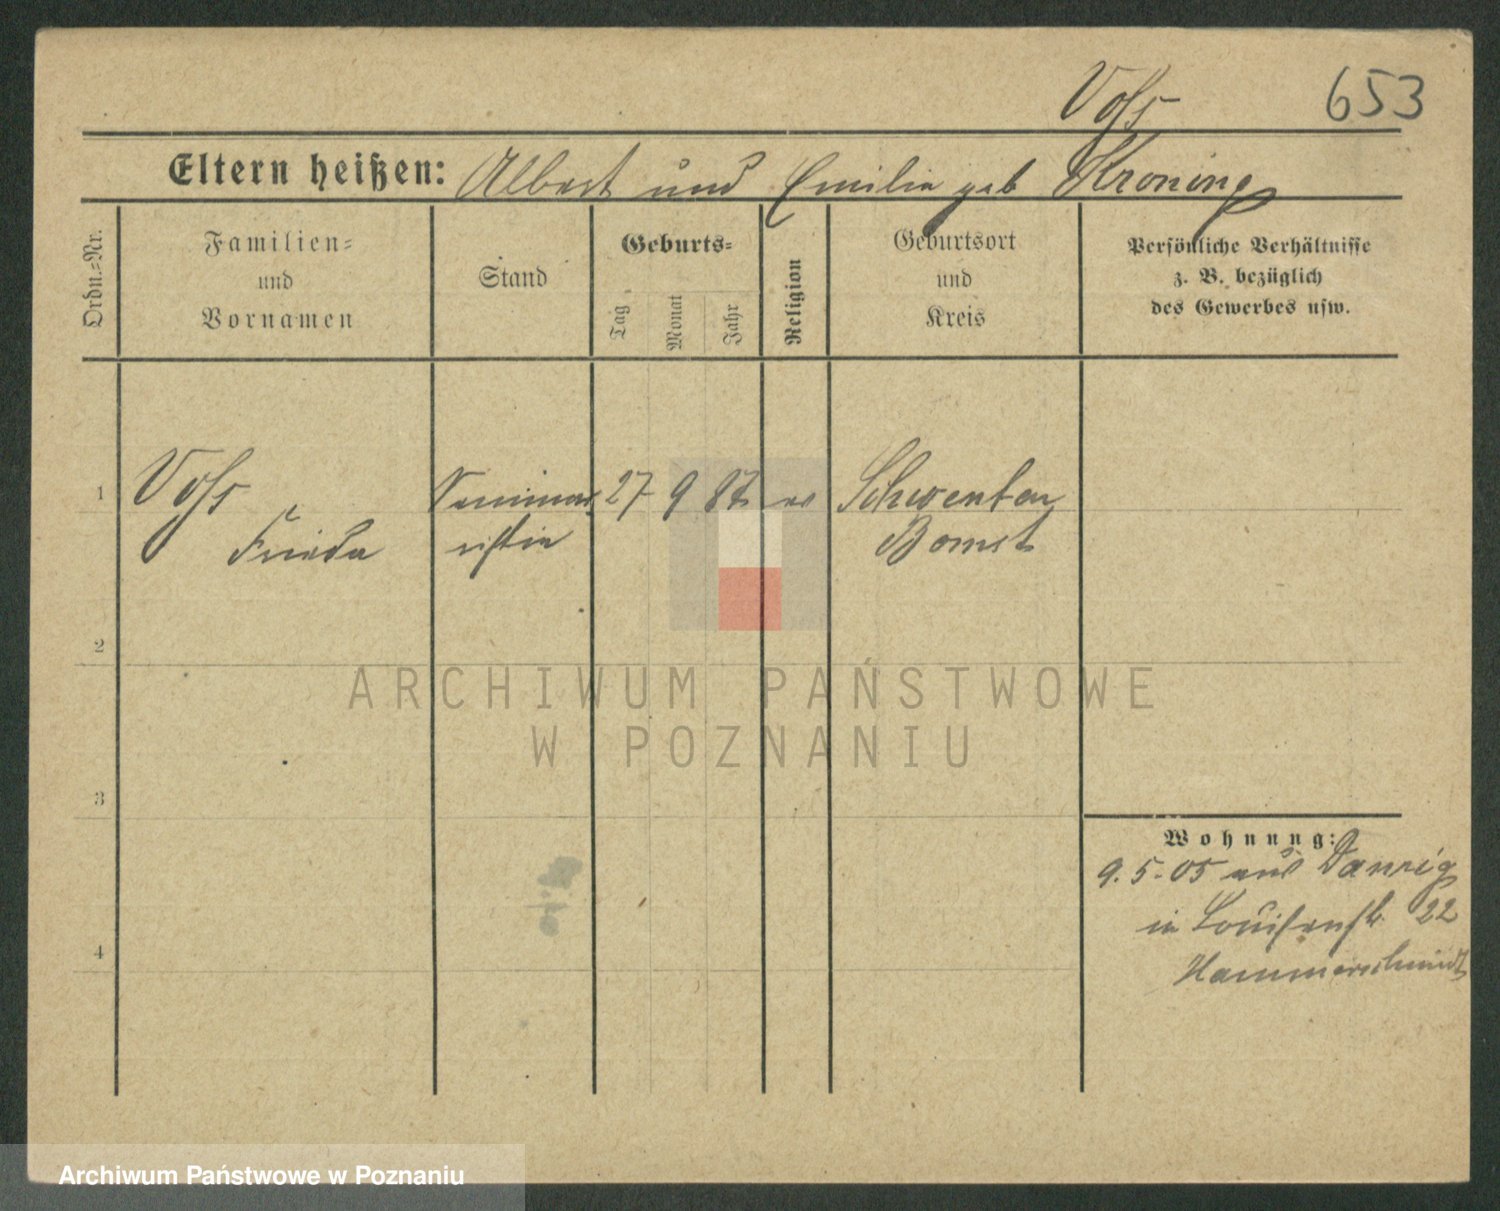 Vohs 653
Eltern heißen: Albert und Emilie geb Kroning
Ordn.=Nr.
Familien=
und
Vornamen
Stand
Geburts=
Tag
Monat
Jahr
Religion
Geburtsort
und
Kreis
Persönliche Verhältnisse
z. B. bezüglich
des Gewerbes usw.
1 Vohs Seminar 27 9 87 ev Schwenten
Frieda istin Bomst
2
ARCHIWUM PAŃSTWOWE
W POZNANIU
3
Wohnung:
9.5.05 aus Danzig
in Louisenstr. 22
Hammerschmidt
4
Archiwum Państwowe w Poznaniu